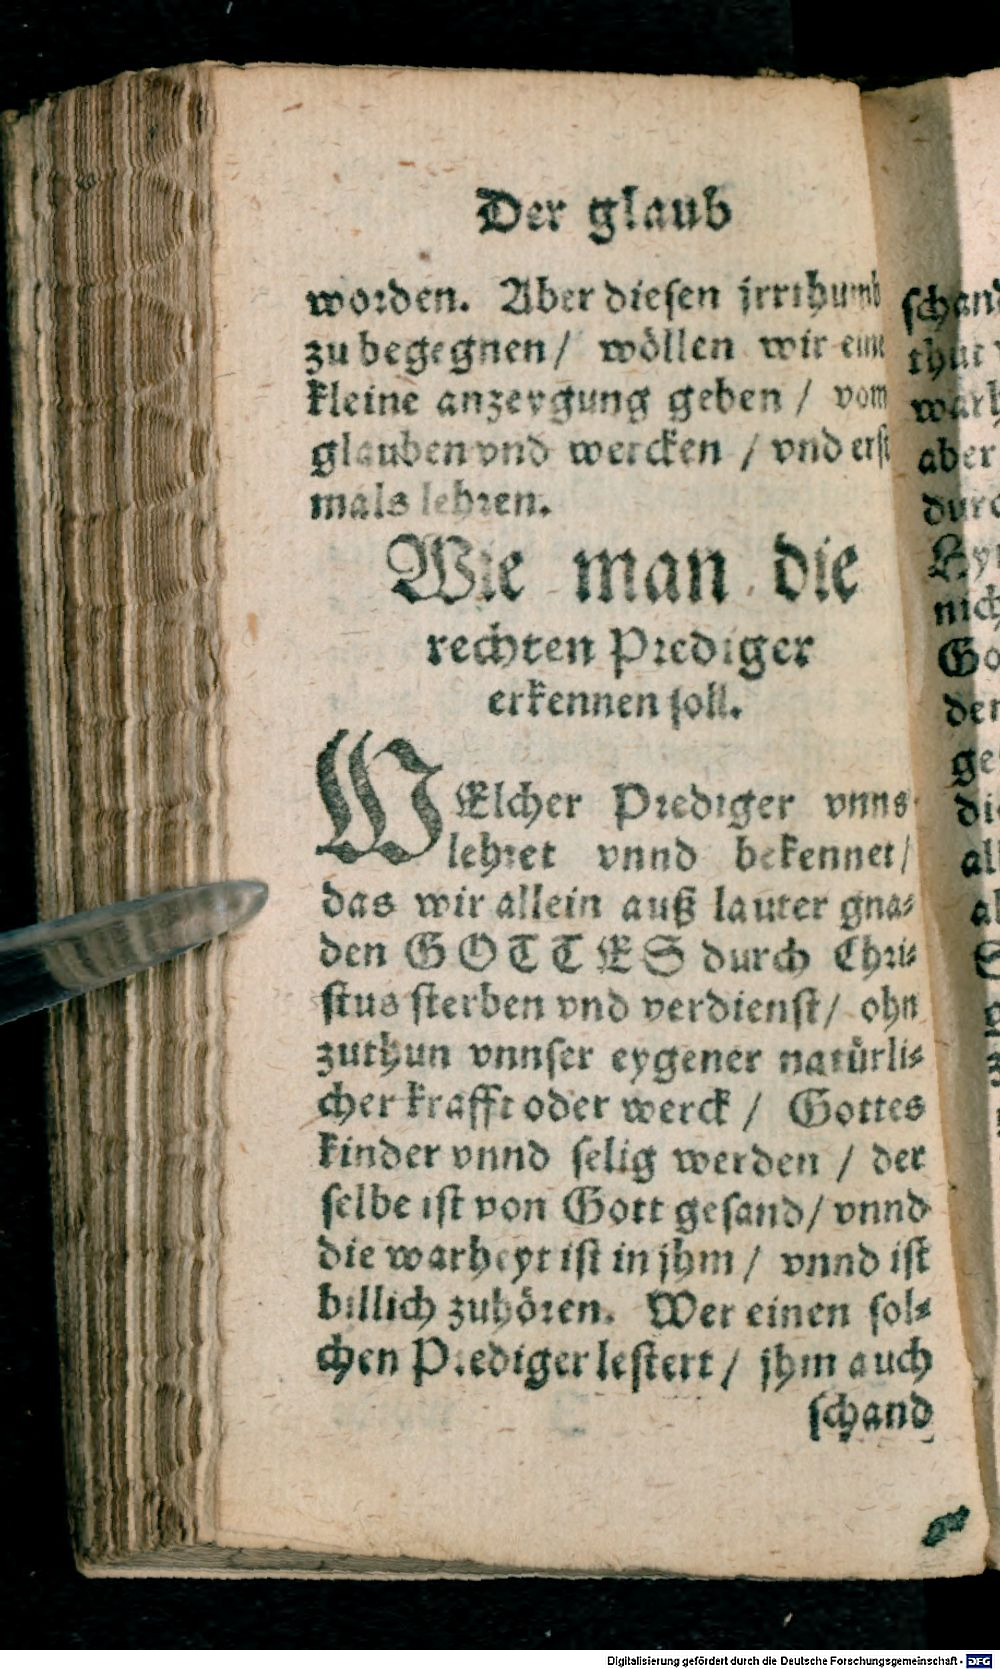 Der glaub
worden. Aber diesen jrrthumb
zu begegnen / wöllen wir eine
kleine anzeygung geben / vom
glauben vnd wercken / vnd erst
mals lehren.
Wie man die
rechten Prediger
erkennen soll.
WElcher Prediger vnns
lehret vnnd bekennet /
das wir allein auß lauter gna⸗
den GOTTES durch Chri⸗
stus sterben vnd verdienst / ohn
zuthun vnnser eygener natürli⸗
cher krafft oder werck / Gottes
kinder vnnd selig werden / der
selbe ist von Gott gesand / vnnd
die warheyt ist in jhm / vnnd ist
billich zuhören. Wer einen sol⸗
chen Prediger lestert / jhm auch
schand
Digitalisierung gefördert durch die Deutsche Forschungsgemeinschaft - DFG